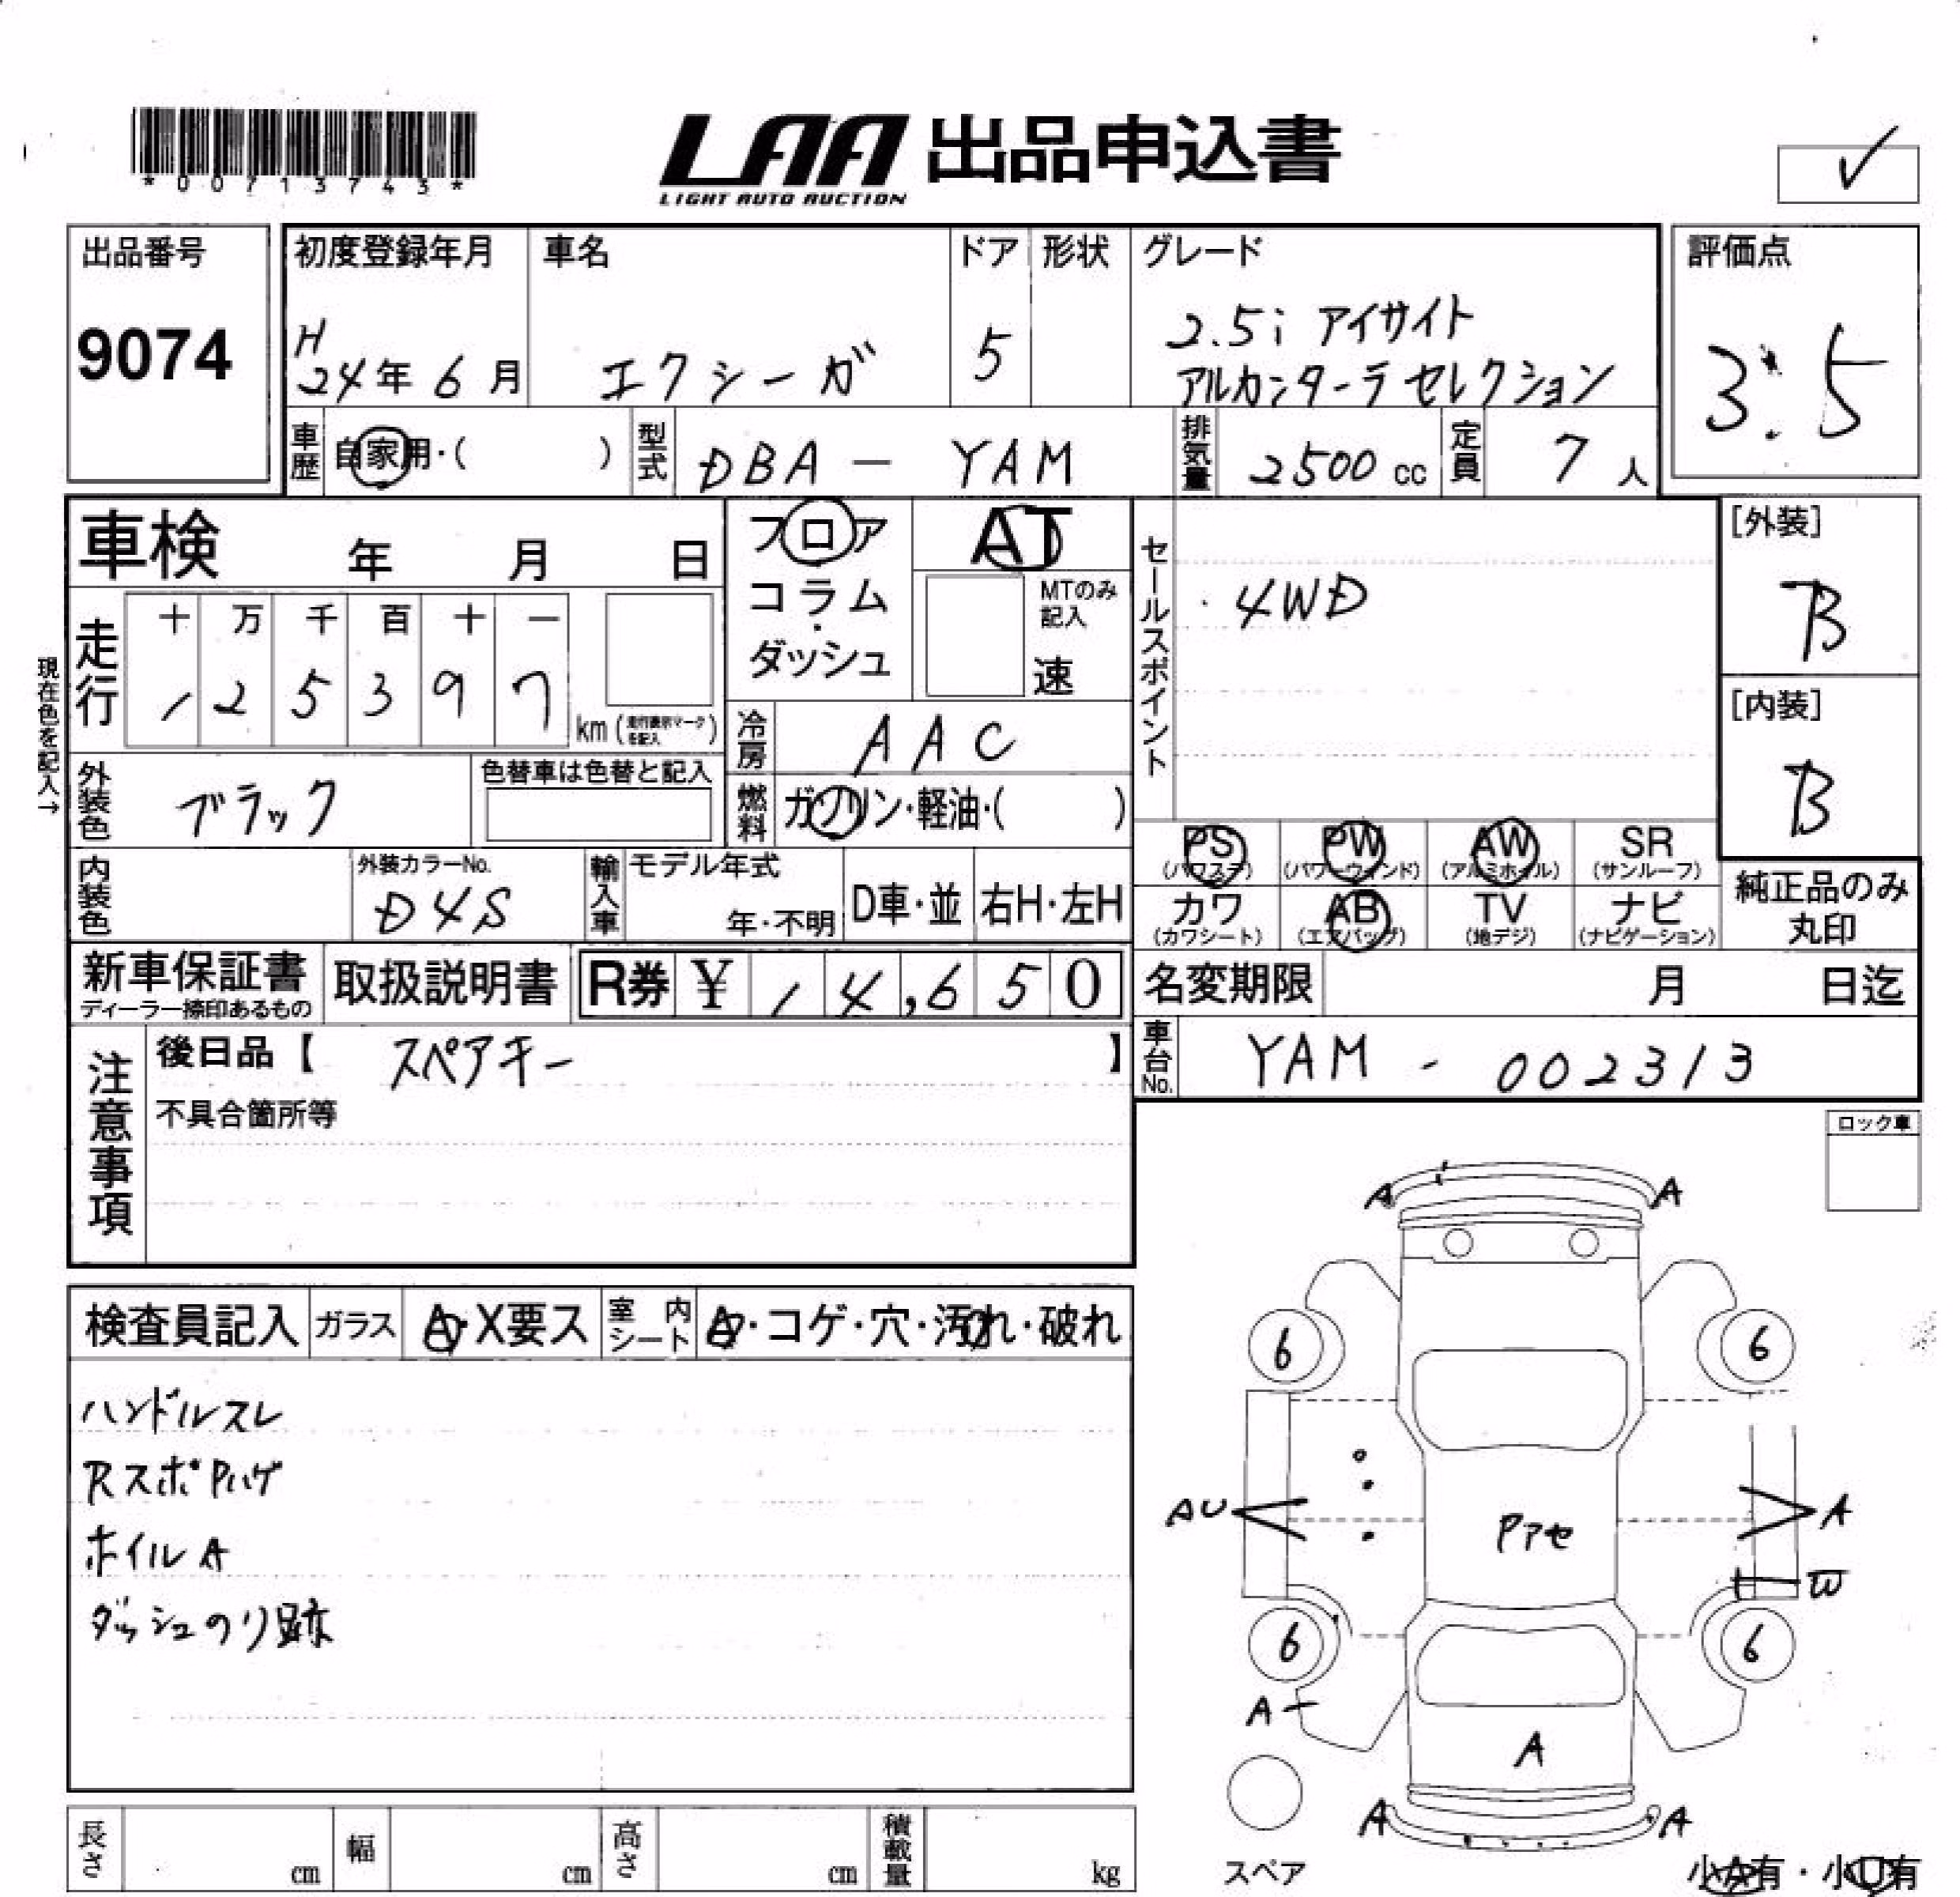 *00713743*
LAA 出品申込書
LIGHT AUTO AUCTION
✓
出品番号
9074
初度登録年月
H
24年 6月
車名
エクシーガ
ドア
5
形状
グレード
2.5i アイサイト
アルカンターラ セレクション
評価点
3.5
車歴
自家用・( )
型式
DBA - YAM
排気量
2500 cc
定員
7 人
車検 年 月 日
フロア
コラム
・
ダッシュ
AT
MTのみ
記入
速
セールスポイント
・4WD
[外装]
B
[内装]
B
現在色を記入→
走行
十 万 千 百 十 一
1 2 5 3 9 7
km (走行表示マークを記入)
冷房
AAC
外装色
ブラック
色替車は色替と記入
燃料
ガソリン・軽油・( )
PS
(パワステ)
PW
(パワーウインド)
AW
(アルミホイル)
SR
(サンルーフ)
カワ
(カワシート)
AB
(エアバッグ)
TV
(地デジ)
ナビ
(ナビゲーション)
純正品のみ
丸印
内装色
外装カラーNo.
D4S
輸入車
モデル年式
年・不明
D車・並
右H・左H
新車保証書
ディーラー捺印あるもの
取扱説明書
R券 ¥ 14,650
名変期限 月 日迄
車台No.
YAM - 002313
注意事項
後日品【 スペアキー 】
不具合箇所等
ロック車
検査員記入
ガラス
A・X要ス
室内
シート
A・コゲ・穴・汚れ・破れ
ハンドルスレ
RスポPハゲ
ホイルA
ダッシュのり跡
A A
6 6
AU
Pアセ
A
W
6 6
A
A
A A
スペア
長さ cm
幅 cm
高さ cm
積載量 kg
小A有・小U有